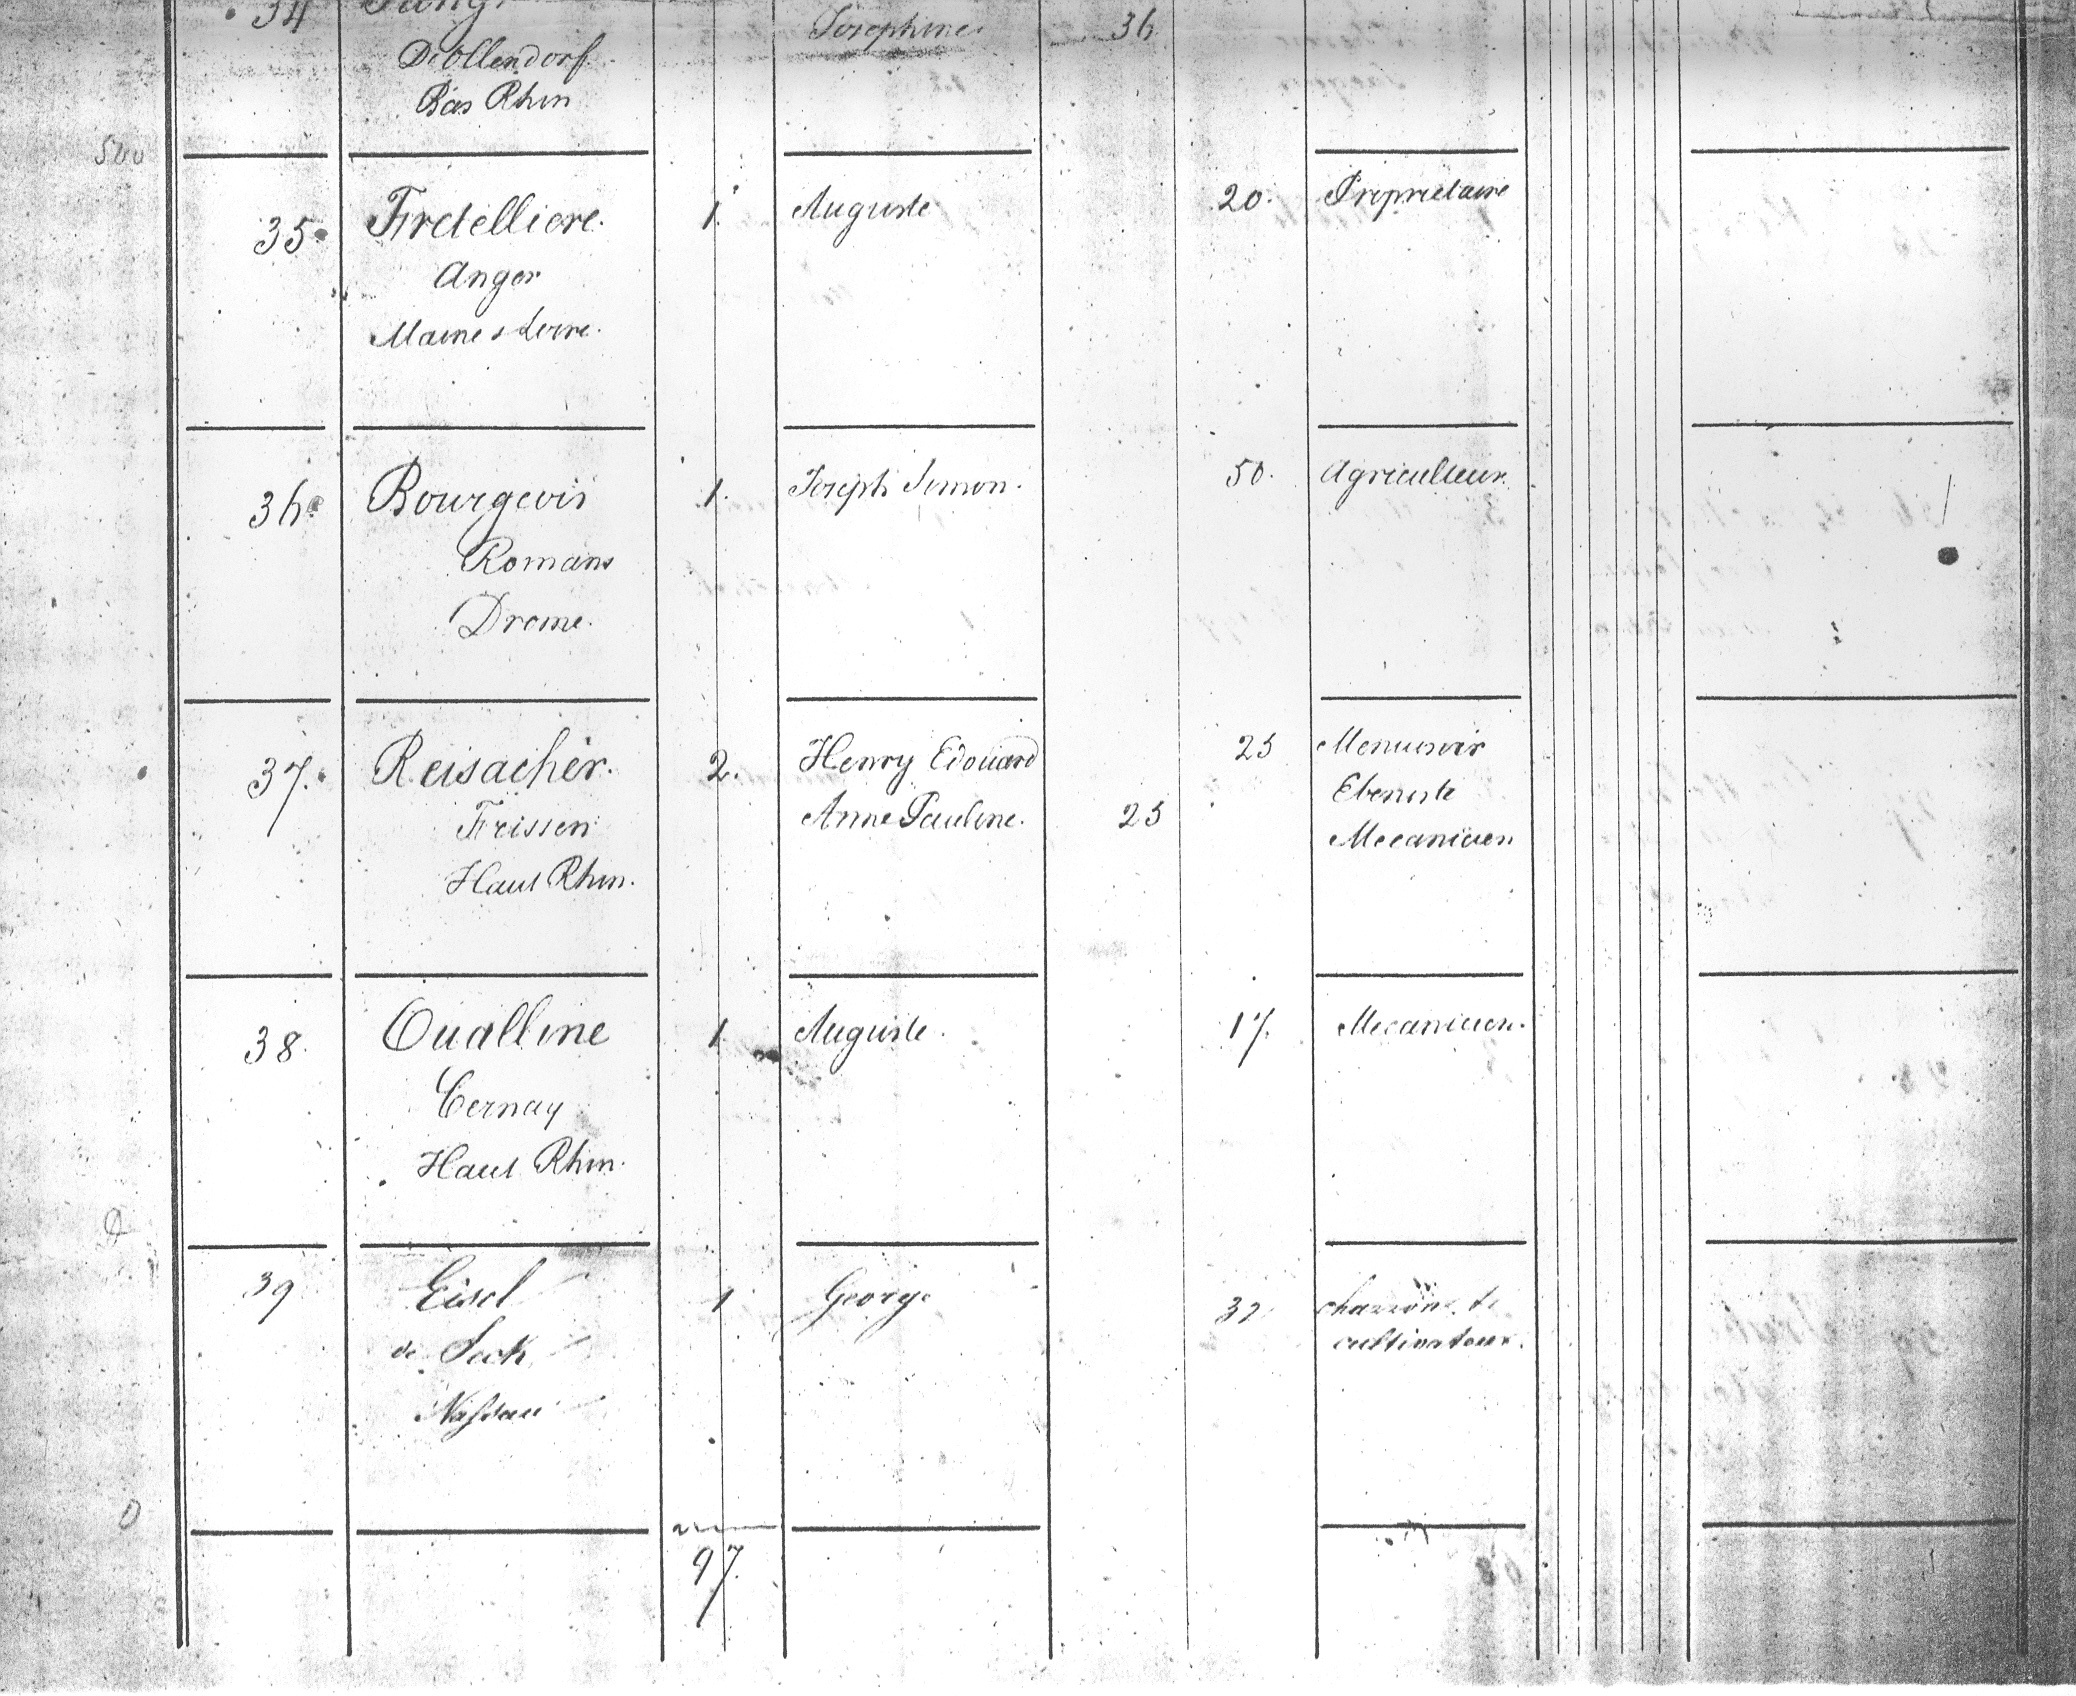 34 Jungr Josephine. 36
De Ollendorf
Bas Rhin
500
35. Fretelliere. 1. Auguste 20. Proprietaire
Anger
Maine & Loire.
36. Bourgeois 1. Joseph Simon. 50. Agriculteur
Romans
Drome.
37. Reisacher. 2. Henry Edouard 25 Menusier
Anne Pauline. 25 Ebeniste
Frissen Mecanicien
Haut Rhin.
38. Oualline 1 Auguste. 17. Mecanicien.
Cernay
Haut Rhin.
39 Eisel 1 George 32 charron &
de Seck cultivateur.
Nassau
0
97.